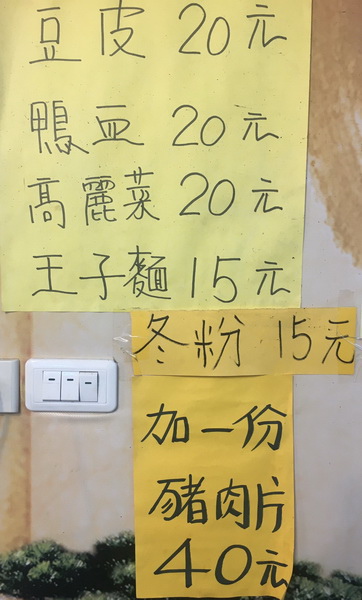 豆皮 20元
鴨血 20元
高麗菜 20元
王子麵 15元
冬粉 15元
加一份
豬肉片
40元